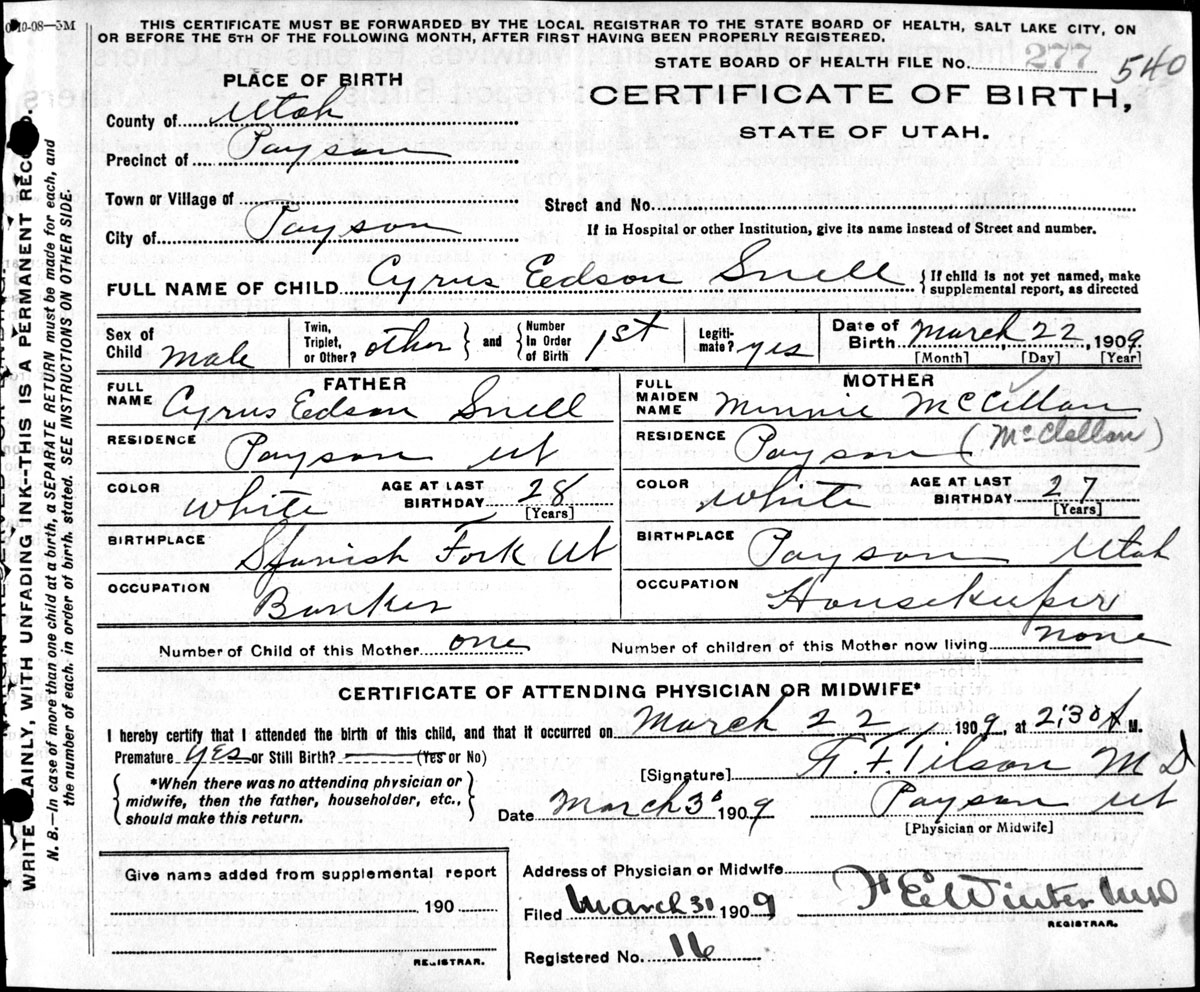 C 10-08—3M
THIS CERTIFICATE MUST BE FORWARDED BY THE LOCAL REGISTRAR TO THE STATE BOARD OF HEALTH, SALT LAKE CITY, ON
OR BEFORE THE 5TH OF THE FOLLOWING MONTH, AFTER FIRST HAVING BEEN PROPERLY REGISTERED.
STATE BOARD OF HEALTH FILE No. 277 540
PLACE OF BIRTH
CERTIFICATE OF BIRTH,
STATE OF UTAH.
County of Utah
Precinct of Payson
Town or Village of
Street and No.
City of Payson
If in Hospital or other Institution, give its name instead of Street and number.
FULL NAME OF CHILD Cyrus Eedson Snell { If child is not yet named, make supplemental report, as directed
Sex of Child male Twin, Triplet, or Other? other } and { Number In Order of Birth 1st Legiti-mate? yes Date of Birth March 22, 1909
[Month] [Day] [Year]
FATHER
MOTHER
FULL NAME Cyrus Eedson Snell
FULL MAIDEN NAME Minnie McClellan
RESIDENCE Payson Ut
RESIDENCE Payson (McClellan)
COLOR White AGE AT LAST BIRTHDAY 28 [Years]
COLOR White AGE AT LAST BIRTHDAY 27 [Years]
BIRTHPLACE Spanish Fork Ut
BIRTHPLACE Payson Utah
OCCUPATION Banker
OCCUPATION Housekeeper
Number of Child of this Mother one Number of children of this Mother now living none
CERTIFICATE OF ATTENDING PHYSICIAN OR MIDWIFE*
I hereby certify that I attended the birth of this child, and that it occurred on March 22 1909, at 2:30 A M.
Premature yes or Still Birth? (Yes or No)
[Signature] F. Tilson MD
{ *When there was no attending physician or midwife, then the father, householder, etc., should make this return. }
Date March 30 1909 Payson Ut
[Physician or Midwife]
Give name added from supplemental report
190
REGISTRAR.
Address of Physician or Midwife
Filed March 31 1909 Winter MD
REGISTRAR.
Registered No. 16
WRITE PLAINLY, WITH UNFADING INK--THIS IS A PERMANENT RECORD.
N. B.—In case of more than one child at a birth, a SEPARATE RETURN must be made for each, and
the number of each, in order of birth, stated. SEE INSTRUCTIONS ON OTHER SIDE.